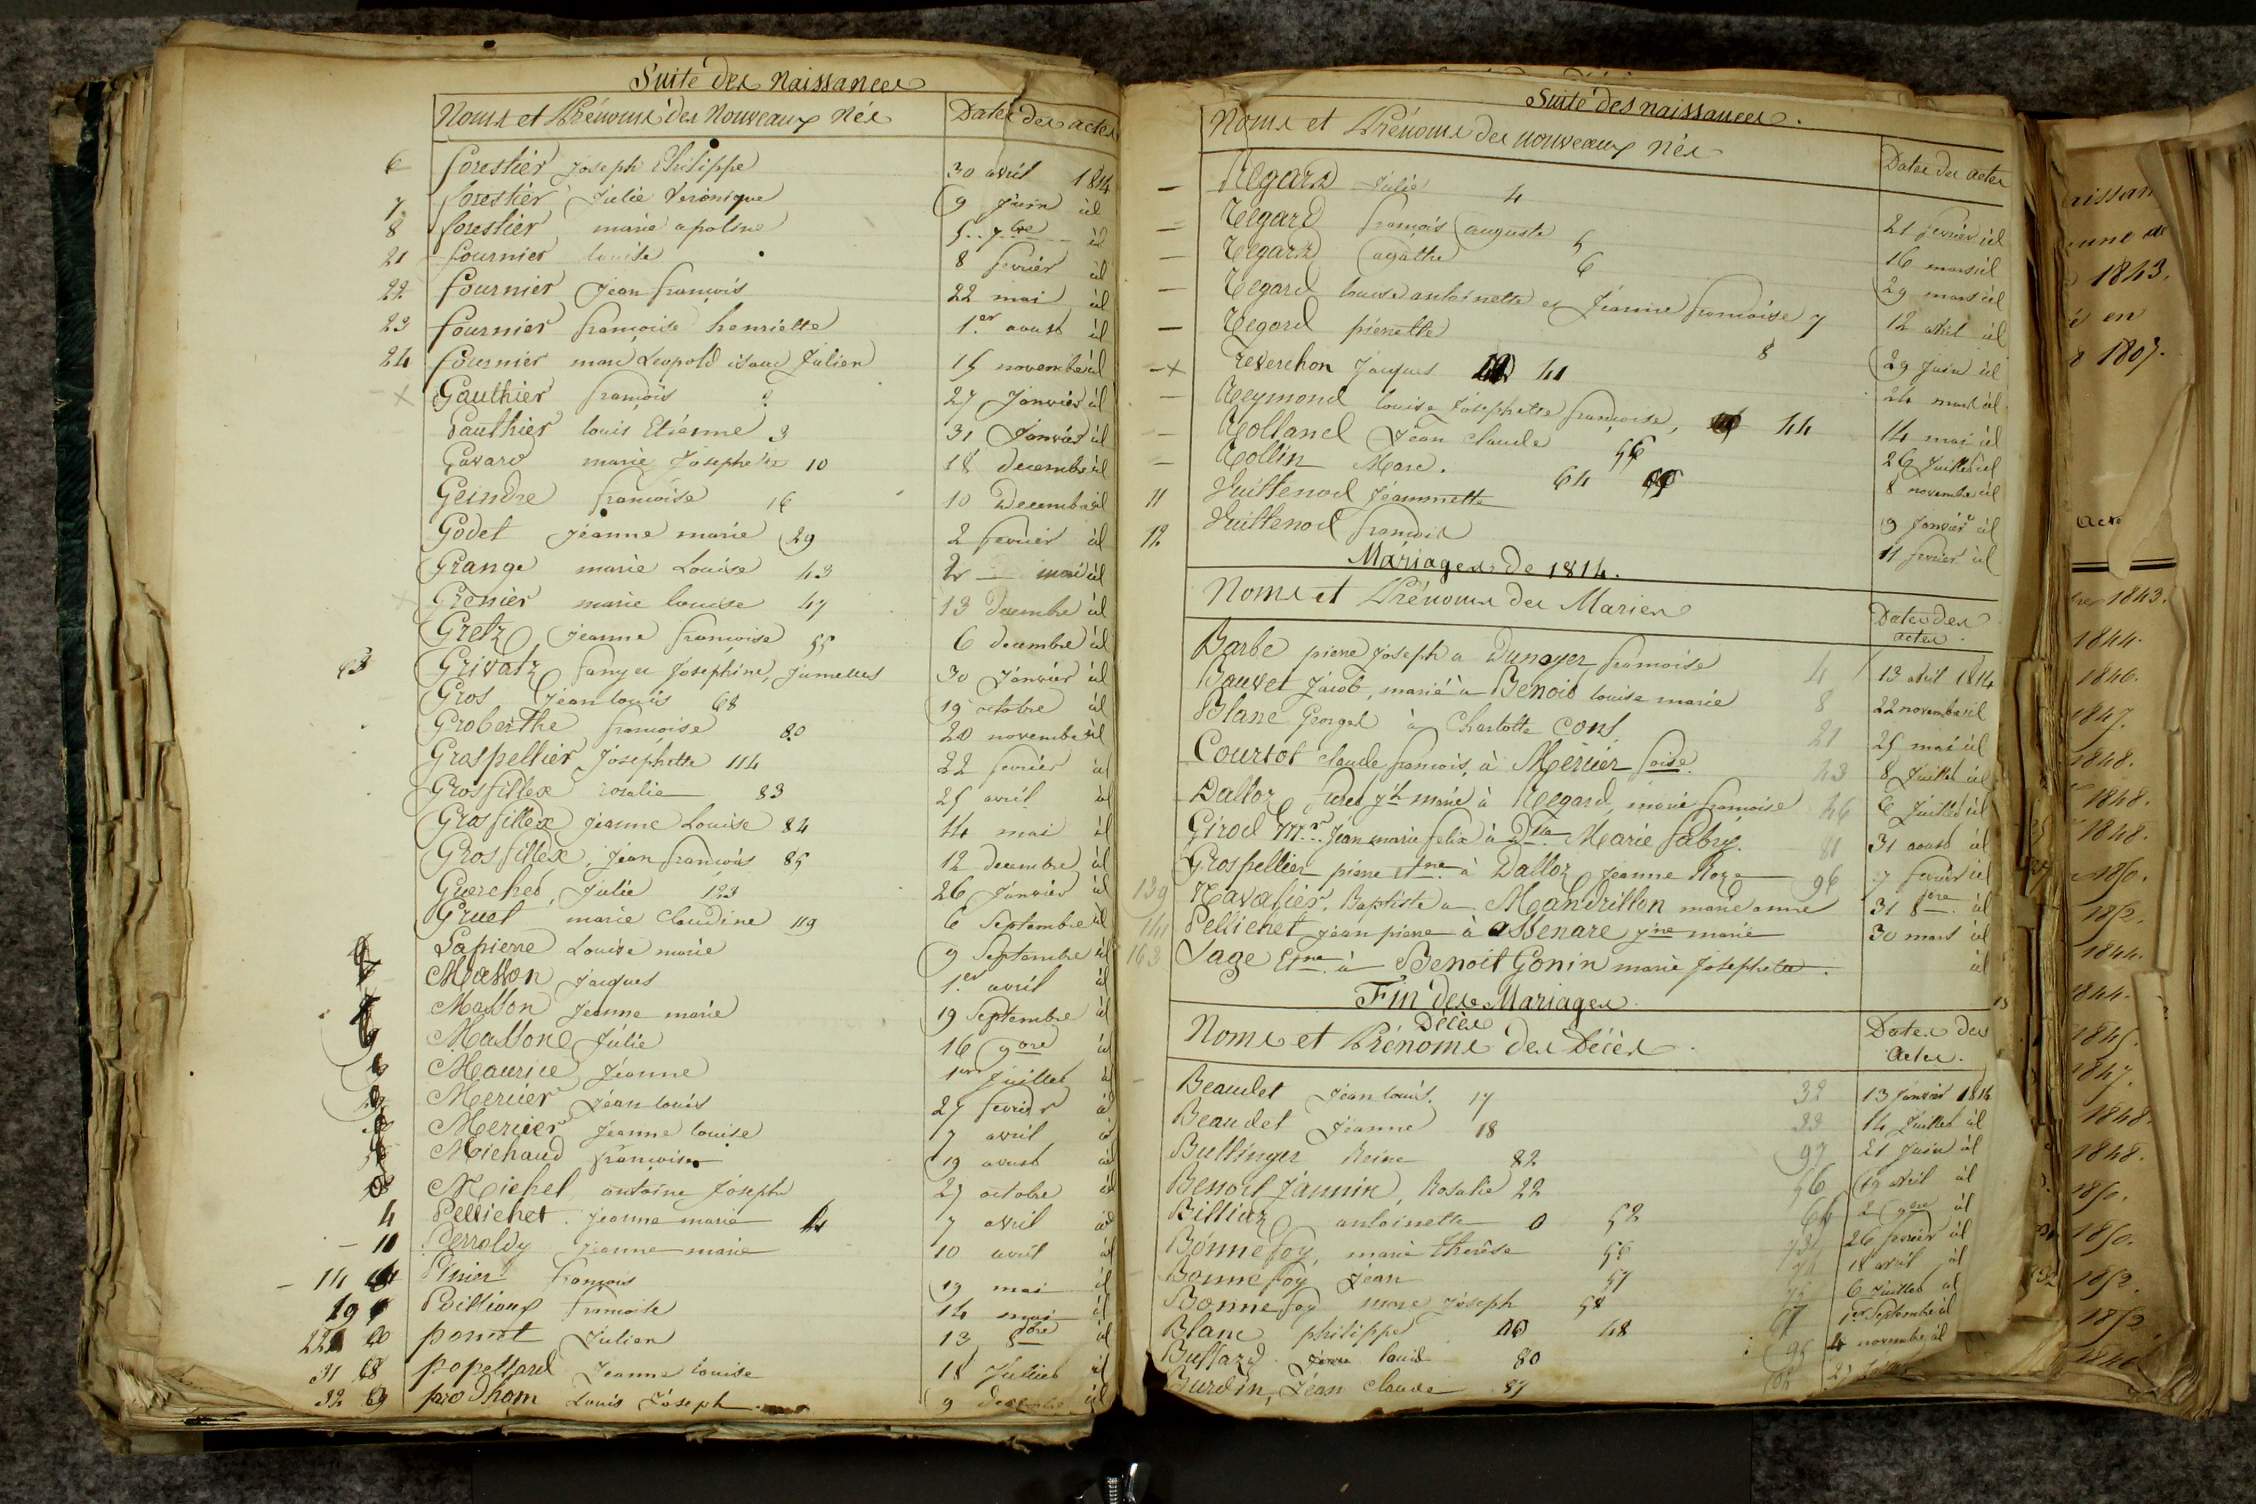 Suite des Naissances
Noms et Prénoms des Nouveaux Nés Dates des actes
6 forestier Joseph Philippe 30 avril 1814
7 forestier Julie Veronique 9 Juin id
8 forestier marie apoline 5 7bre id
21 fournier louise 8 fevrier id
22 fournier Jean françois 22 mai id
23 fournier françoise henriette 1.er aoust id
24 fournier marc Leopold isaac Julien 15 novembre id
x Gauthier françois 2 27 Janvier id
Gauthier louis Etienne 3 31 Janvier id
Gavard marie Josephte 10 18 decembre id
Geindre françoise 16 10 Decembre id
Godet Jeanne marie 29 2 fevrier id
Grange marie Louise 43 2 mai id
Grenier marie louise 47 13 decembre id
Gretz Jeanne françoise 55 6 decembre id
63 Grivatz fany et Joséphine, Jumelles 30 Janvier id
Gros Jean louis 68 19 octobre id
Groberthe françoise 80 20 novembre id
Grospellier Josephtte 114 22 fevrier id
Grosfillex rosalie 83 25 avril id
Grosfillex Jeanne Louise 84 14 mai id
Grosfillex, Jean françois 85 12 decembre id
Guerched, Julie 123 26 Janvier id
Gruet marie Claudine 119 6 Septembre id
Lapierre Louise marie 9 Septembre id
Masson Jacques 1.er avril id
Masson Jeanne marie 19 Septembre id
Massone Julie 16 9bre id
Maurice Jeanne 1er Juillet id
Mercier Jean louis 27 fevrier id
Mercier Jeanne louise 7 avril id
Michaud françoise 19 aoust id
Michel antoine Joseph 27 octobre id
4 Pellichet Jeanne marie 7 avril id
10 Perroldy Jeanne marie 10 avril id
14 Pinier françois 19 mai id
19 Poillioux francoise 14 mai id
22 60 ponnet Julien 13 8bre id
31 68 popellard Jeanne louise 18 Juillet id
32 69 prodhom Louis Joseph 9 decembre id
Suite des naissances.
Noms et Prénoms des nouveaux Nés Dates des actes
Regard Julie 4 21 fevrier id
Regard françois auguste 5 16 mars id
Regard agathe 6 29 mars id
Regard louise antoinette et Jeanne françoise 7 12 avril id
Regard pierrette 8 29 Juin id
x Reverchon Jacques 41 24 mars id
Reymond louise Josephtte françoise, 44 14 mai id
Rolland Jean claude 56 26 Juillet id
Rollin Marc. 64 8 novembre id
11 Vuittenod Jeannette 9 Janvier id
12 Vuittenod françois 11 fevrier id
Mariages de 1814.
Noms et Prénoms des Mariés Dates des actes
Barbe pierre Joseph a Dunoyer françoise 4 13 avril 1814
Bauvet Jacob, marié à Benoit louise marie 8 22 novembre id
Blanc Georges à Charlotte Cons 21 25 mai id
Courtot claude francois, à Mercier foise 43 8 Juillet id
Dalloz marié à Regard, marie françoise 46 6 Juillet id
Girod Mr. Jean marie felix à Dlle Marie fabry. 81 31 aoust id
Grospellier pierre à Dalloz Jeanne Roze 96 7 fevrier id
139 Navafier Baptiste a Mandrillon marie anne 31 8bre id
141 Pellichet Jean pierre à assenare marie 30 mars id
163 Sage à Benoit Gonin marie Josephtte. id
Fin des Mariages
Décès
Noms et Prénoms des Décés Dates des actes.
Beaudet Jean louis. 17 32 13 Janvier 1814
Beaudet Jeanne 18 33 14 Juillet id
Bullinger Reine 82 97 21 Juin id
Benoit Jannin, Rosalie 22 36 19 avril id
Billiaz antoinette 52 2 9bre id
Bonnefoy, marie therèse 56 73 26 fevrier id
Bonnefoy Jean 57 74 18 avril id
Bonnefoy marc Joseph 58 75 6 Juillet id
Blanc philippe 48 67 1er Septembre id
Buffard louis 80 95 4 novembre id
Burdin, Jean claude 87
1843.
en
1807.
1843.
1844.
1846.
1847.
1848.
1848.
1848.
1850.
1852.
1844.
1844.
1845.
1847.
1848.
1848.
1850.
1850.
1852.
1852
1846